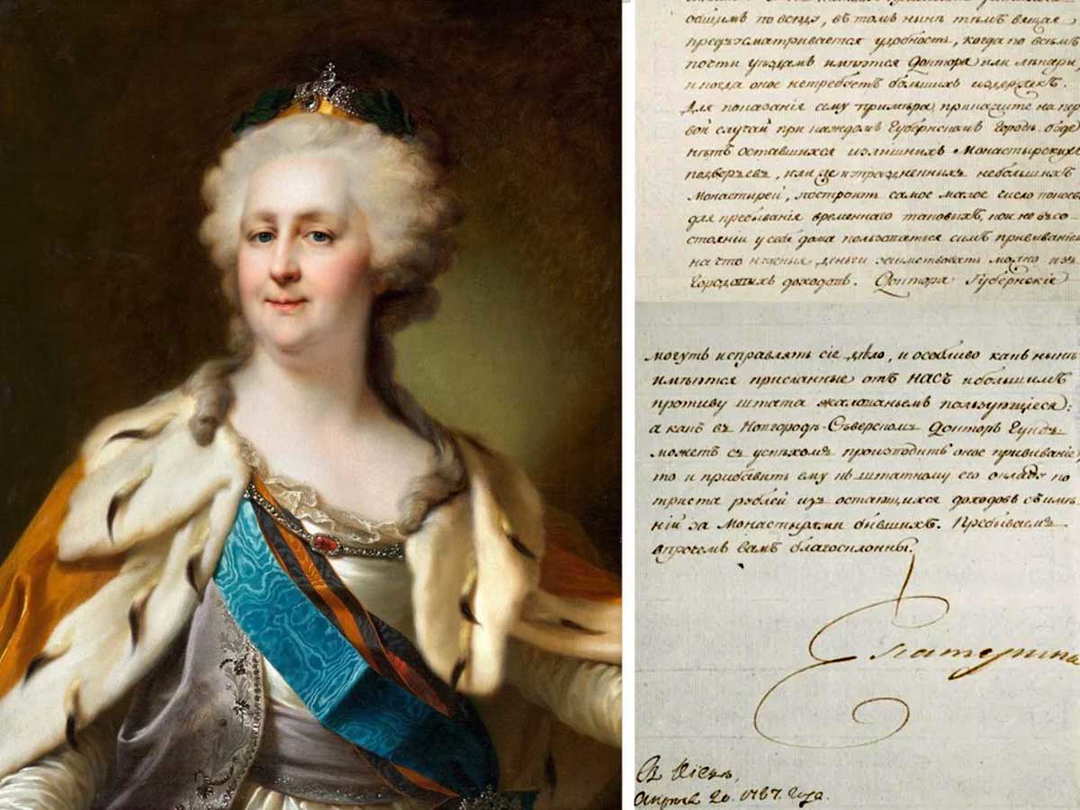 общимъ повсюду, въ томъ нынѣ тѣмъ вящая
предусматривается удобность, когда по всѣмъ
почти уѣздамъ имѣются Доктора или лѣкари,
и когда оное нетребуетъ большихъ издержекъ.
Для показанія сему примѣра, прикажите на пер
вой случай при каждомъ Губернскомъ городѣ
изъ оставшихся излишнихъ Монастырскихъ
подворьевъ, или изъ упраздненныхъ небольшихъ
Монастырей, построить самое малое число покоевъ
для пребыванія временнаго таковыхъ, кои не въ со-
стояніи у себя дома пользоваться симъ прививаніемъ
на что нужныя деньги заимствовать можно изъ
городовыхъ доходовъ. Доктора Губернскіе
могутъ исправлять сіе дѣло, и особливо какъ нынѣ
имѣются присланные отъ НАСЪ и большимъ
противу штата жалованьемъ пользующіеся:
а какъ въ Новгородѣ-Сѣверскомъ Докторъ
можетъ съ успѣхомъ производить оное прививаніе,
то и прибавить ему къ штатному его окладу по
триста рублей изъ остающихся доходовъ съ имѣ
ній за Монастырями бывшихъ. Пребываемъ
впрочемъ вамъ благосклонны.
Екатерина
Въ Кіевѣ,
Апрѣля 20. 1787. года.